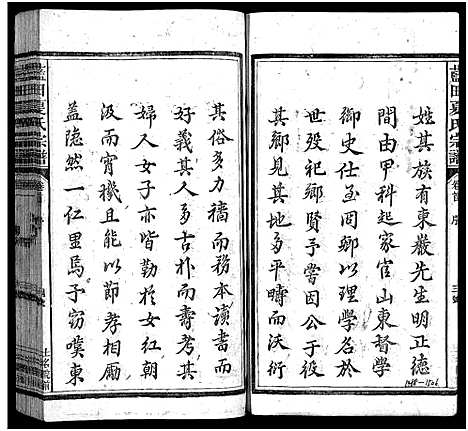 藍田夏氏宗譜
卷首 序
姓其族有東巖先生明正德
間由甲科起家官山東督學
御史仕至同鄉以理學名於
世殁祀鄉賢予嘗因公于役
其鄉見其地多平疇而沃衍
1488-1506
藍田夏氏宗譜
卷首 序
其俗多力穡而務本讀書而
好義其人多古朴而壽考其
婦人女子亦皆勤於女紅朝
汲而宵機且能以節孝相勵
蓋隐然一仁里焉予窃嘆東